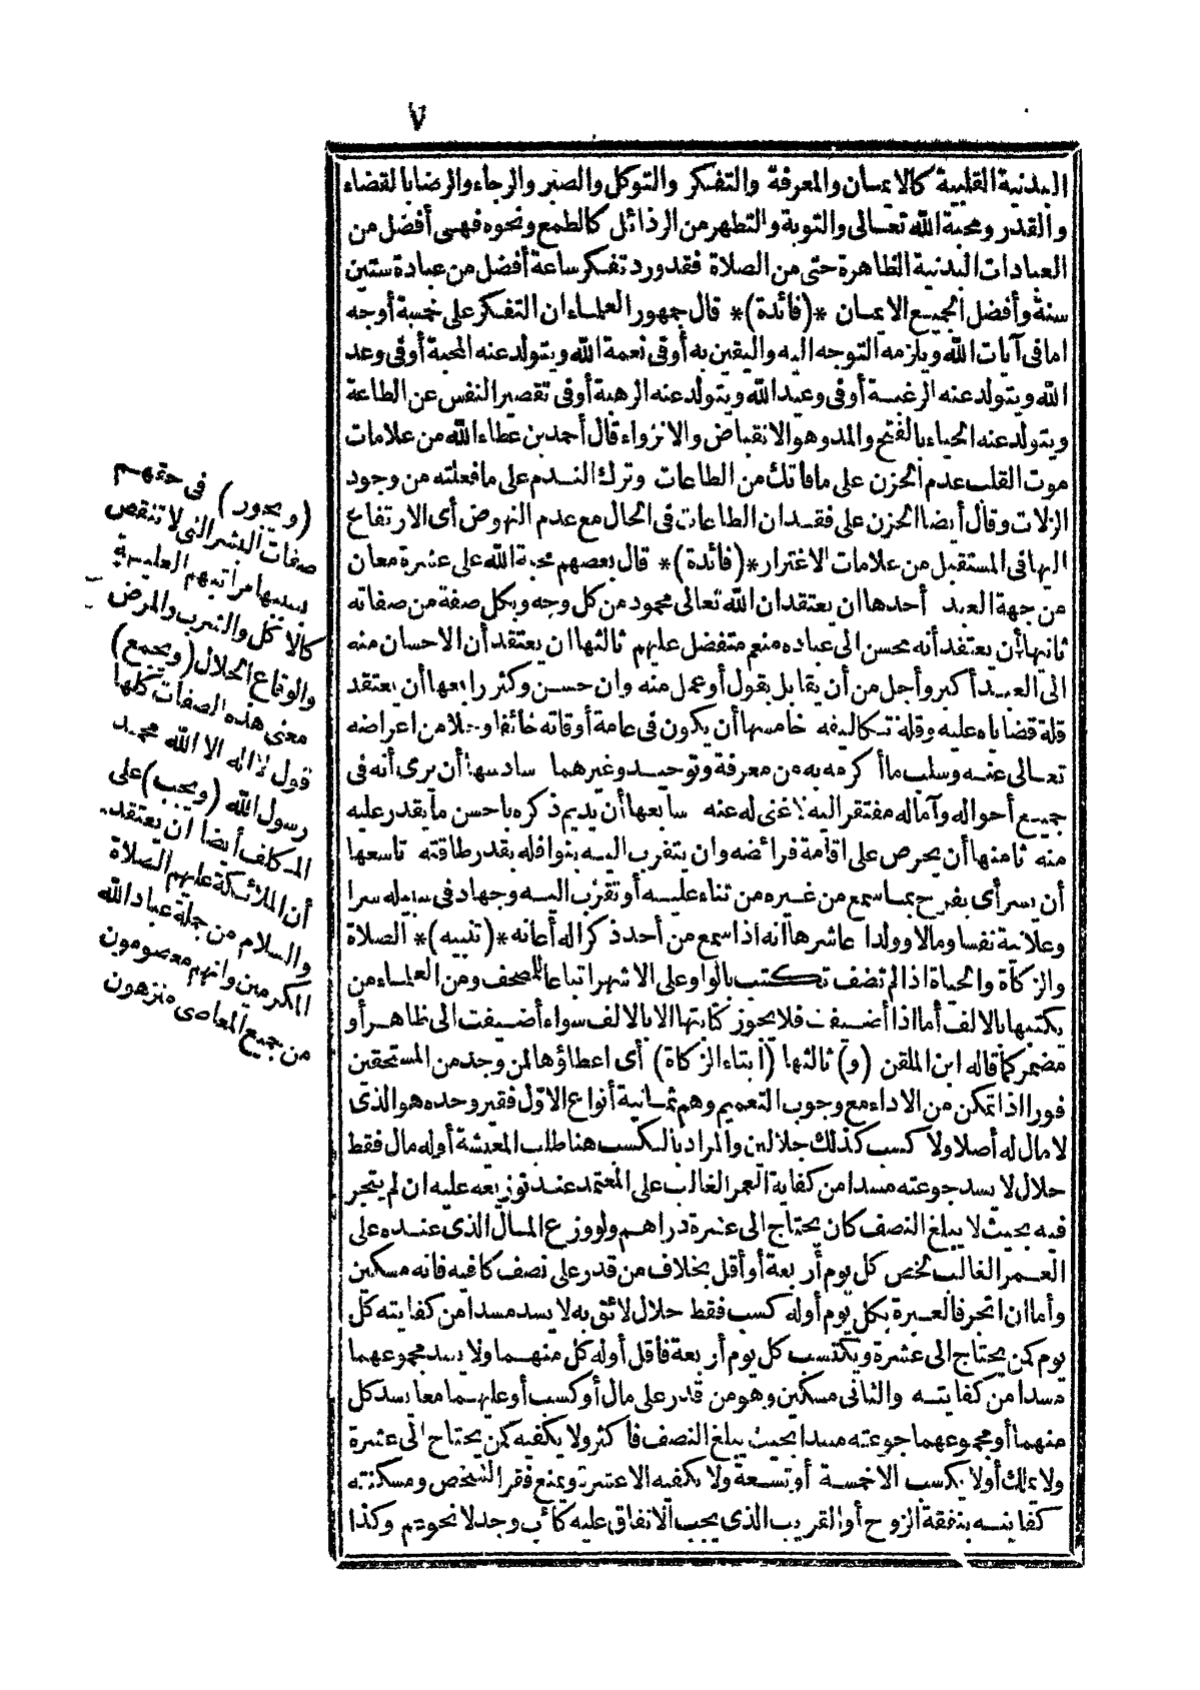 ٧
البدنية القلبية كالايمان والمعرفة والتفكر والتوكل والصبر والرجاء والرضا بالقضاء
والقدر ومحبة الله تعالى والتوبة والتطهر من الرذائل كالطمع ونحوه فهى أفضل من
العبادات البدنية الظاهرة حتى من الصلاة فقد ورد تفكر ساعة أفضل من عبادة ستين
سنة وأفضل الجميع الايمان *(فائدة)* قال جمهور العلماء ان التفكر على خمسة أوجه
اما فى آيات الله ويلزمه التوجه اليه واليقين به أو فى نعمة الله ويتولد عنه المحبة أو فى وعد
الله ويتولد عنه الرغبة أو فى وعيد الله ويتولد عنه الرهبة أو فى تقصير النفس عن الطاعة
ويتولد عنه الحياء بالفتح والمد وهو الانقباض والانزواء قال أحمد بن عطاء الله من علامات
موت القلب عدم الحزن على ما فاتك من الطاعات وترك الندم على ما فعلته من وجود
الزلات وقال أيضا الحزن على فقدان الطاعات فى الحال مع عدم النهوض أى الارتفاع
اليها فى المستقبل من علامات الاغترار *(فائدة)* قال بعضهم محبة الله على عشرة معان
من جهة العبد أحدها ان يعتقد ان الله تعالى محمود من كل وجه وبكل صفة من صفاته
ثانيها أن يعتقد أنه محسن الى عباده منعم متفضل عليهم ثالثها ان يعتقد أن الاحسان منه
الى العبد أكبر وأجل من أن يقابل بقول أو عمل منه وان حسن وكثر رابعها أن يعتقد
قلة قضاياه عليه وقلة تكاليفه خامسها أن يكون فى عامة أوقاته خائفا وجلا من اعراضه
تعالى عنه وسلب ما أكرمه به من معرفة وتوحيد وغيرهما سادسها أن يرى أنه فى
جميع أحواله وآماله مفتقر اليه لا غنى له عنه سابعها أن يديم ذكره باحسن ما يقدر عليه
منه ثامنها أن يحرص على اقامة فرائضه وان يتقرب اليه بنوافله بقدر طاقته تاسعها
أن يسر أى يفرح بما سمع من غيره من ثناء عليه أو تقرب اليه وجهاد فى سبيله سرا
وعلانية نفسا ومالا وولدا عاشرها انه اذا سمع من أحد ذكر الله أعانه *(تنبيه)* الصلاة
والزكاة والحياة اذا لم تضف تكتب بالواو على الاشهر اتباعا للمصحف ومن العلماء من
يكتبها بالالف أما اذا أضيفت فلا يجوز كتابتها الا بالالف سواء أضيفت الى ظاهر أو
مضمر كما قاله ابن الملقن (و) ثالثها (ايتاء الزكاة) أى اعطاؤها لمن وجد من المستحقين
فورا اذا تمكن من الاداء مع وجوب التعميم وهم ثمانية أنواع الاول فقير وحده هو الذى
لا مال له أصلا ولا كسب كذلك حلالين والمراد بالكسب هنا طلب المعيشة أو له مال فقط
حلال لا يسد جوعته مسدا من كفاية العمر الغالب على المعتمد عند توزيعه عليه ان لم يتجر
فيه بحيث لا يبلغ النصف كان يحتاج الى عشرة دراهم ولو وزع المال الذى عنده على
العمر الغالب لخص كل يوم أربعة أو أقل بخلاف من قدر على نصف كافيه فانه مسكين
وأما ان اتجر فالعبرة بكل يوم أو له كسب فقط حلال لائق به لا يسد مسدا من كفايته كل
يوم كمن يحتاج الى عشرة ويكتسب كل يوم أربعة فأقل أو له كل منهما ولا يسد مجموعهما
مسدا من كفايته والثانى مسكين وهو من قدر على مال أو كسب أو عليهما معا يسد كل
منهما أو مجموعهما جوعته مسدا بحيث يبلغ النصف فأكثر ولا يكفيه كمن يحتاج الى عشرة
ولا يملك أو لا يكسب الا خمسة أو تسعة ولا يكفيه الا عشرة ويمنع فقر الشخص ومسكنته
كفايته بنفقة الزوج أو القريب الذى يجب الانفاق عليه كأب وجد لا نحو عم وكذا
(ويجوز) فى حقهم
صفات البشر التى لا تنقص
بسببها مراتبهم العلية
كالاكل والشرب والمرض
والوقاع الحلال (ويجمع)
معنى هذه الصفات كلها
قول لا اله الا الله محمد
رسول الله (ويجب) على
المكلف أيضا ان يعتقد
أن الملائكة عليهم الصلاة
والسلام من جملة عباد الله
المكرمين وانهم معصومون
من جميع المعاصى منزهون